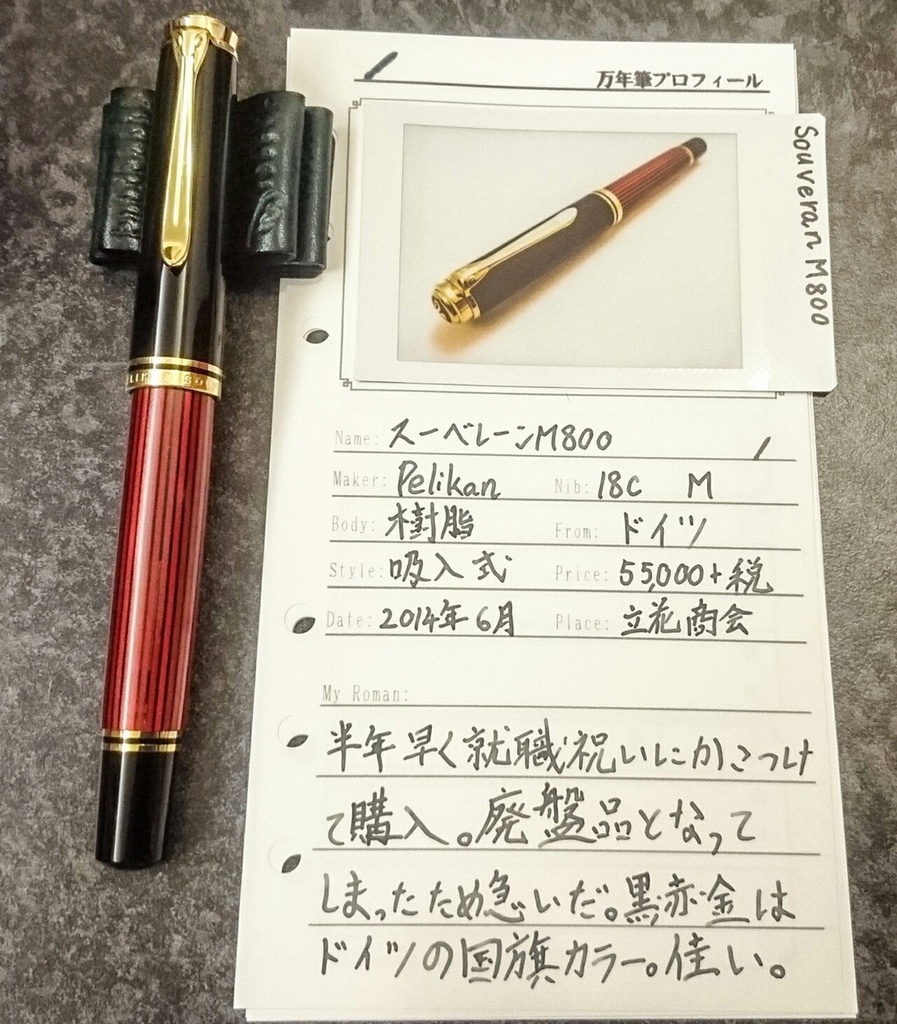 万年筆プロフィール
Souveran M800
Name: スーベレーンM800
Maker: Pelikan Nib: 18C M
Body: 樹脂 From: ドイツ
Style: 吸入式 Price: 55,000+税
Date: 2014年6月 Place: 立花商会
My Roman:
半年早く就職祝いにかこつけ
て購入。廃盤品となって
しまったため急いだ。黒赤金は
ドイツの国旗カラー。佳い。